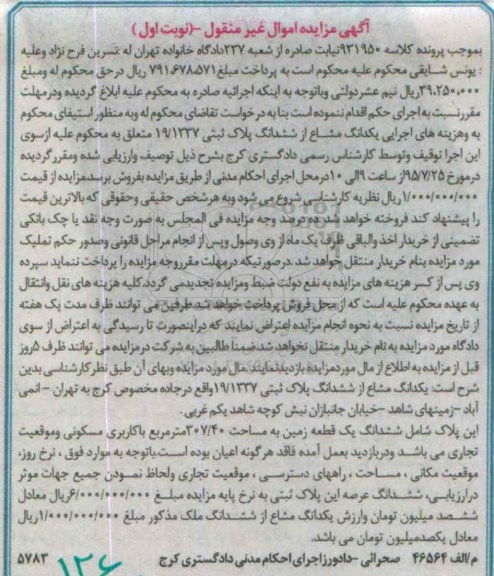 آگهی مزایده اموال غیر منقول -(نوبت اول)
بموجب پرونده کلاسه ۹۳۱۹۵۰نیابت صادره از شعبه ۲۳۷دادگاه خانواده تهران له :نسرین فرح نژاد وعلیه
: یونس شایقی محکوم علیه محکوم است به پرداخت مبلغ ۷۹۱،۶۷۸،۵۷۱ ریال درحق محکوم له ومبلغ
۳۹،۲۵۰،۰۰۰ریال نیم عشردولتی وباتوجه به اینکه اجرائیه صادره به محکوم علیه ابلاغ گردیده ودرمهلت
مقررنسبت به اجرای حکم اقدام ننموده است بنا به درخواست تقاضای محکوم له وبه منظور استیفای محکوم
به وهزینه های اجرایی یکدانگ مشاع از ششدانگ پلاک ثبتی ۱۹/۱۳۳۷ متعلق به محکوم علیه ازسوی
این اجرا توقیف وتوسط کارشناس رسمی دادگستری کرج بشرح ذیل توصیف وارزیابی شده ومقررگردیده
درمورخ ۹۵/۷/۲۵از ساعت ۹الی ۱۰درمحل اجرای احکام مدنی از طریق مزایده بفروش برسد.مزایده از قیمت
۱/۰۰۰/۰۰۰/۰۰۰ریال نظریه کارشناسی شروع می شود وبه هرشخص حقیقی وحقوقی که بالاترین قیمت
را پیشنهاد کند فروخته خواهد شد.ده درصد وجه مزایده فی المجلس به صورت وجه نقد یا چک بانکی
تضمینی از خریدار اخذ والباقی ظرف یک ماه از وی وصول وپس از انجام مراحل قانونی وصدور حکم تملیک
مورد مزایده بنام خریدار منتقل خواهد شد .درصورتیکه درمهلت مقرروجه مزایده را پرداخت ننماید سپرده
وی پس از کسر هزینه های مزایده به نفع دولت ضبط ومزایده تجدیدمی گردد.کلیه هزینه های نقل وانتقال
به عهده محکوم علیه است که از محل فروش پرداخت خواهد شد.طرفین می توانند ظرف مدت یک هفته
از تاریخ مزایده نسبت به نحوه انجام مزایده اعتراض نمایند که دراینصورت تا رسیدگی به اعتراض از سوی
دادگاه مورد مزایده به نام خریدار منتقل نخواهد شد.ضمنا طالبین به شرکت درمزایده می توانند ظرف ۵روز
قبل از مزایده به اطلاع از مال موردمزایده بازدیدنمایند.مال مورد مزایده وبهای آن طبق نظرکارشناسی بدین
شرح است: یکدانگ مشاع از ششدانگ پلاک ثبتی ۱۹/۱۳۳۷واقع درجاده مخصوص کرج به تهران - اتمی
آباد -زمینهای شاهد -خیابان جانبازان نبش کوچه شاهد یکم غربی.
این پلاک شامل ششدانگ یک قطعه زمین به مساحت ۳۰۷/۴۰مترمربع باکاربری مسکونی وموقعیت
تجاری می باشد ودربازدید بعمل آمده فاقد هرگونه اعیان بوده است.باتوجه به موارد فوق ، نرخ روز،
موقعیت مکانی ، مساحت ، راههای دسترسی ، موقعیت تجاری ولحاظ نمودن جمیع جهات موثر
درارزیابی، ششدانگ عرصه این پلاک ثبتی به نرخ پایه مزایده مبلغ ۶/۰۰۰/۰۰۰/۰۰۰ریال معادل
ششصد میلیون تومان وارزش یکدانگ مشاع از ششدانگ ملک مذکور مبلغ ۱/۰۰۰/۰۰۰/۰۰۰ریال
معادل یکصدمیلیون تومان می باشد.
م/الف ۴۶۵۶۴ صحرائی -دادورزاجرای احکام مدنی دادگستری کرج ۵۷۸۳
۱۲۶